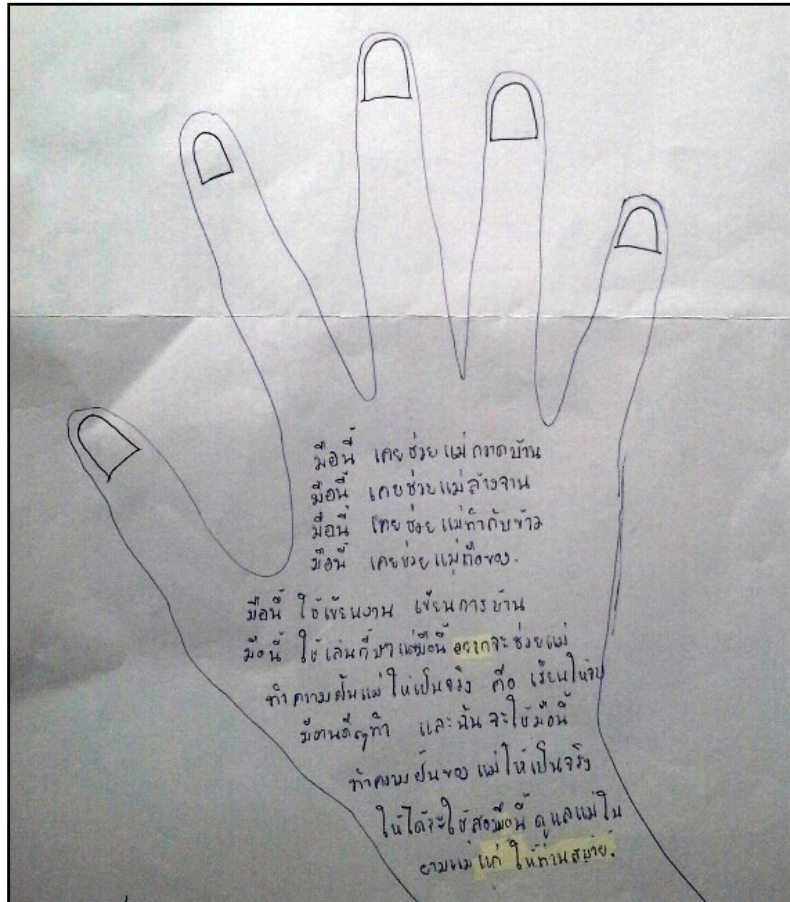 มือนี้ เคยช่วยแม่กวาดบ้าน
มือนี้ เคยช่วยแม่ล้างจาน
มือนี้ เคยช่วยแม่ทำกับข้าว
มือนี้ เคยช่วยแม่ถือของ.
มือนี้ ใช้เขียนงาน เขียนการบ้าน
มือนี้ ใช้เล่นกีฬา แต่มือนี้อยากจะช่วยแม่
ทำความฝันแม่ให้เป็นจริง คือ เรียนให้จบ
มีงานดีๆทำ และฉันจะใช้มือนี้
ทำความฝันของแม่ให้เป็นจริง
ให้ได้จะใช้สองมือนี้ ดูแลแม่ใน
ยามแม่แก่ ให้ท่านสบาย.